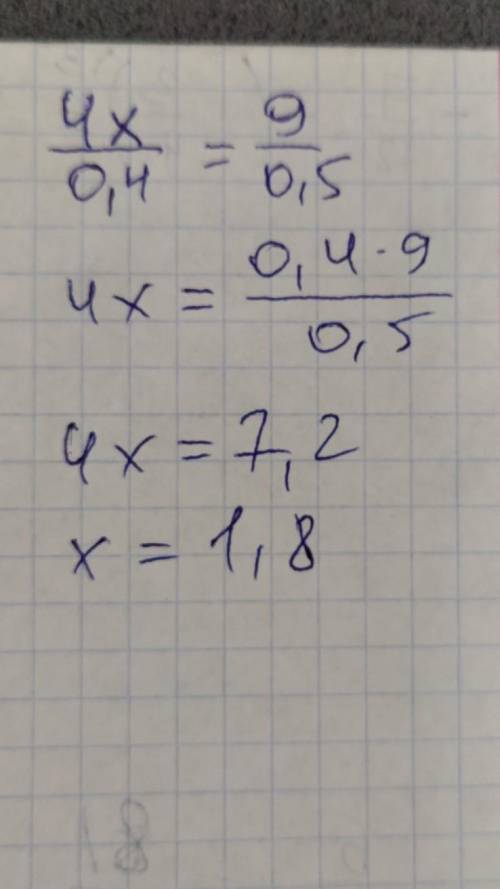 4x/0,4 = 9/0,5
4x = 0,4·9/0,5
4x = 7,2
x = 1,8